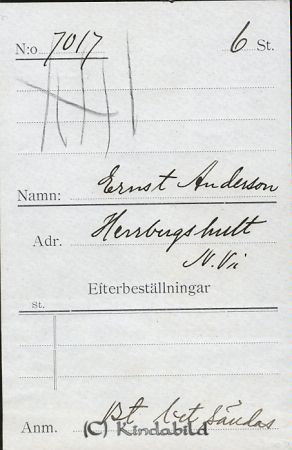 N:o 7017 6 St.
Namn: Ernst Anderson
Adr. Herrbergshult
N. Vi
Efterbeställningar
St.
Anm. Bt bet sändas
(C) Kindabild